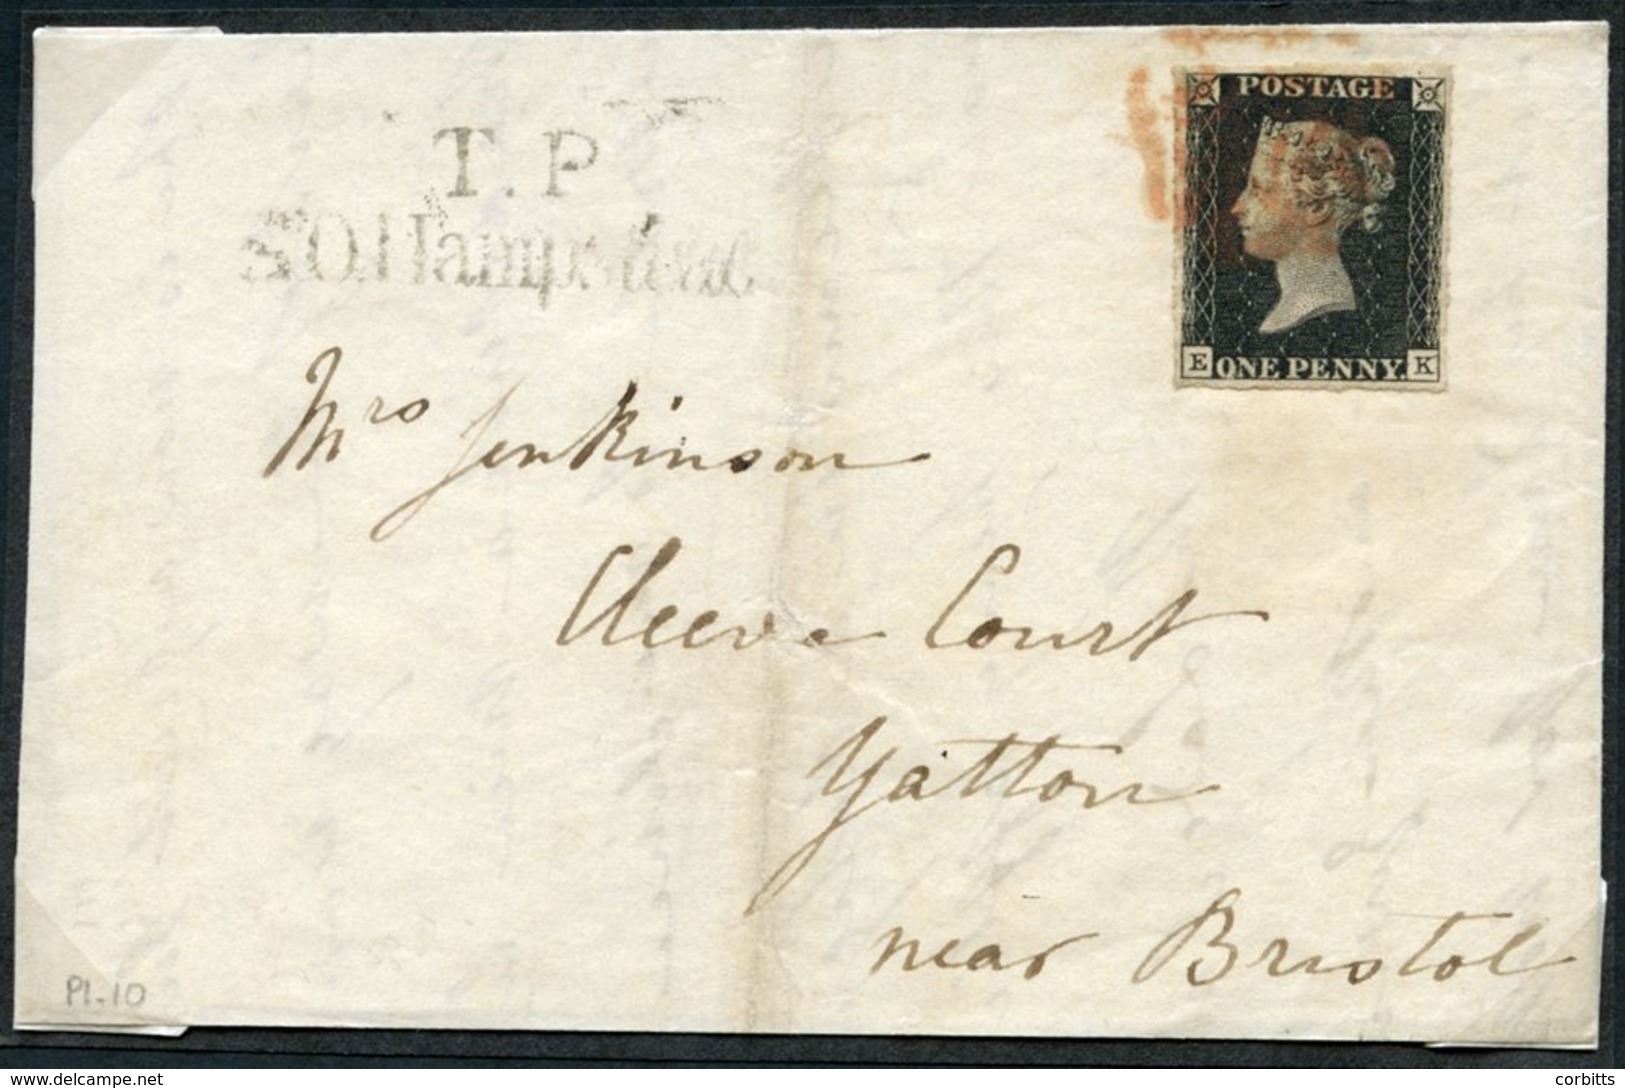 T.P
S.O.Hampstead
POSTAGE
E ONE PENNY. K
Mrs Jenkinson
Cleeve Court
Yatton
near Bristol
Pl.10
www.delcampe.net
corbitts